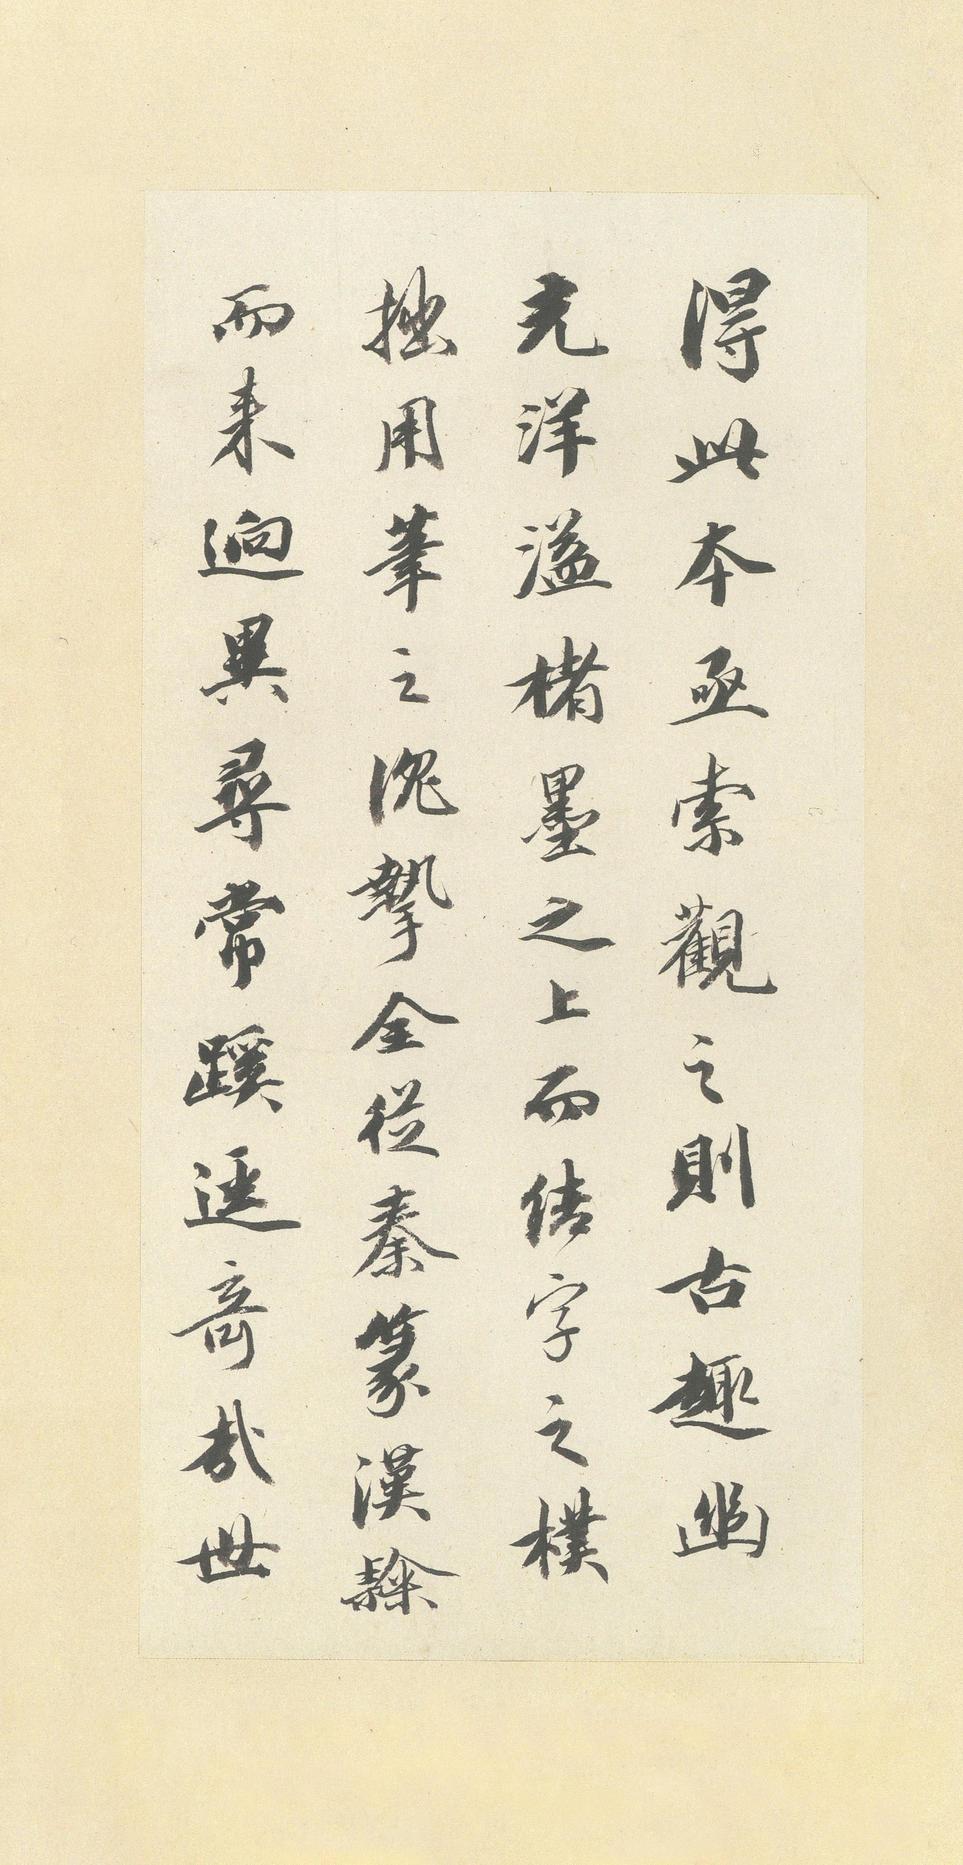 得此本亟索觀之則古趣幽
光洋溢楮墨之上而結字之樸
拙用筆之沈摯全從秦篆漢隸
而来迥異尋常蹊逕奇哉世